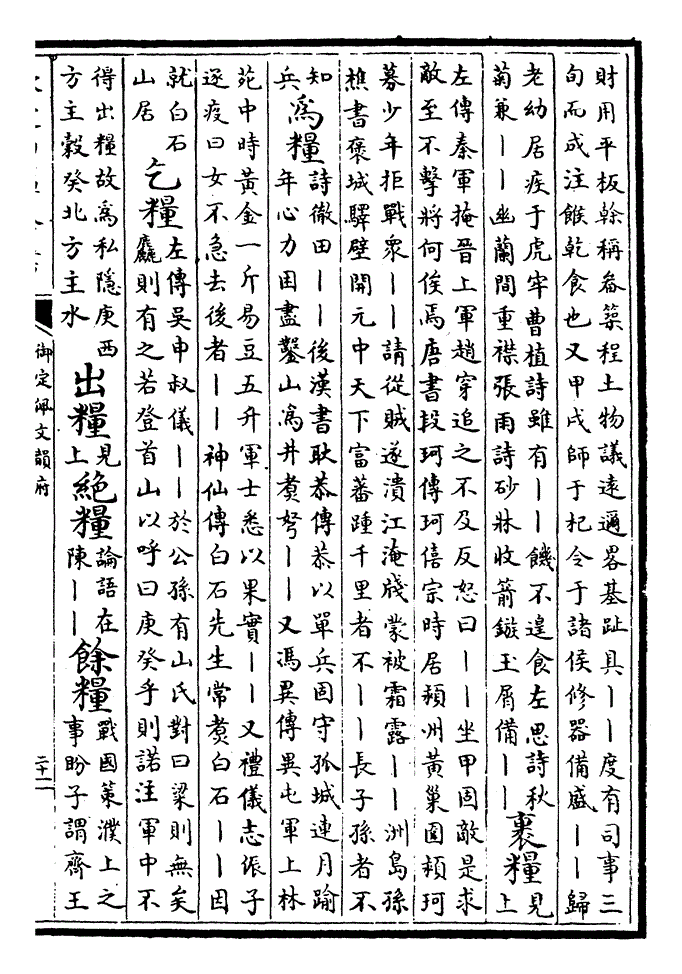 財用平板榦稱畚築程土物議遠邇畧基趾具丨丨度有司事三
旬而成注餱乾食也又甲戌師于杞令于諸侯修器備盛丨丨歸
老幼居疾于虎牢曹植詩雖有丨丨饑不遑食左思詩秋
菊兼丨丨幽蘭間重襟張雨詩砂牀收箭鏃玉屑備丨丨
裹糧見上
左傳秦軍掩晉上軍趙穿追之不及反怒曰丨丨坐甲固敵是求
敵至不擊將何俟焉唐書段珂傳珂僖宗時居潁州黃巢圍潁珂
募少年拒戰衆丨丨請從賊遂潰江淹牋蒙被霜露丨丨洲島孫
樵書褒城驛壁開元中天下富蕃踵千里者不丨丨長子孫者不
知兵
爲糧
詩徹田丨丨後漢書耿恭傳恭以單兵固守孤城連月踰
年心力困盡鑿山爲井煑弩丨丨又馮異傳異屯軍上林
苑中時黃金一斤易豆五升軍士悉以果實丨丨又禮儀志侲子
逐疫曰女不急去後者丨丨神仙傳白石先生常煑白石丨丨因
就白石
山居
乞糧
左傳吳申叔儀丨丨於公孫有山氏對曰梁則無矣
麤則有之若登首山以呼曰庚癸乎則諾注軍中不
得出糧故爲私隱庚西
方主穀癸北方主水
出糧見上
絕糧
論語在
陳丨丨
餘糧
戰國策濮上之
事盼子謂齊王
御定佩文韻府